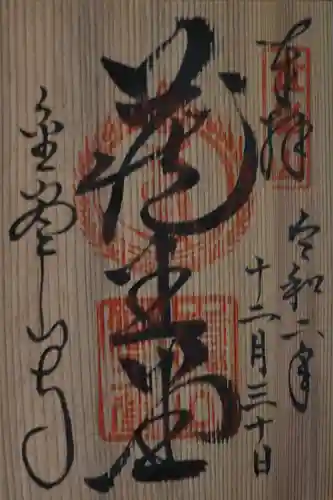 奉拝
令和二年
十二月三十日
蔵王堂
金峯山寺